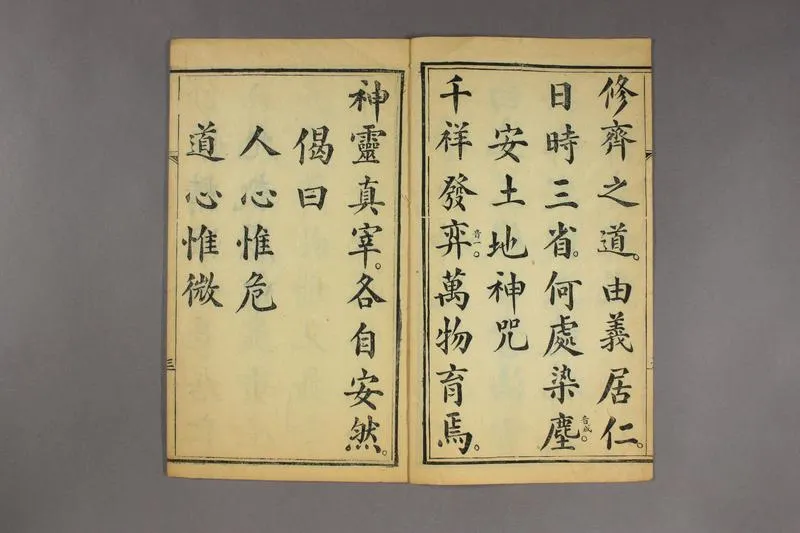 修齊之道。由義居仁。
日時三省。何處染塵音成。
安土地神咒
千祥發弈音一。萬物育焉。
神靈真宰。各自安然。
偈曰
人心惟危
道心惟微
三